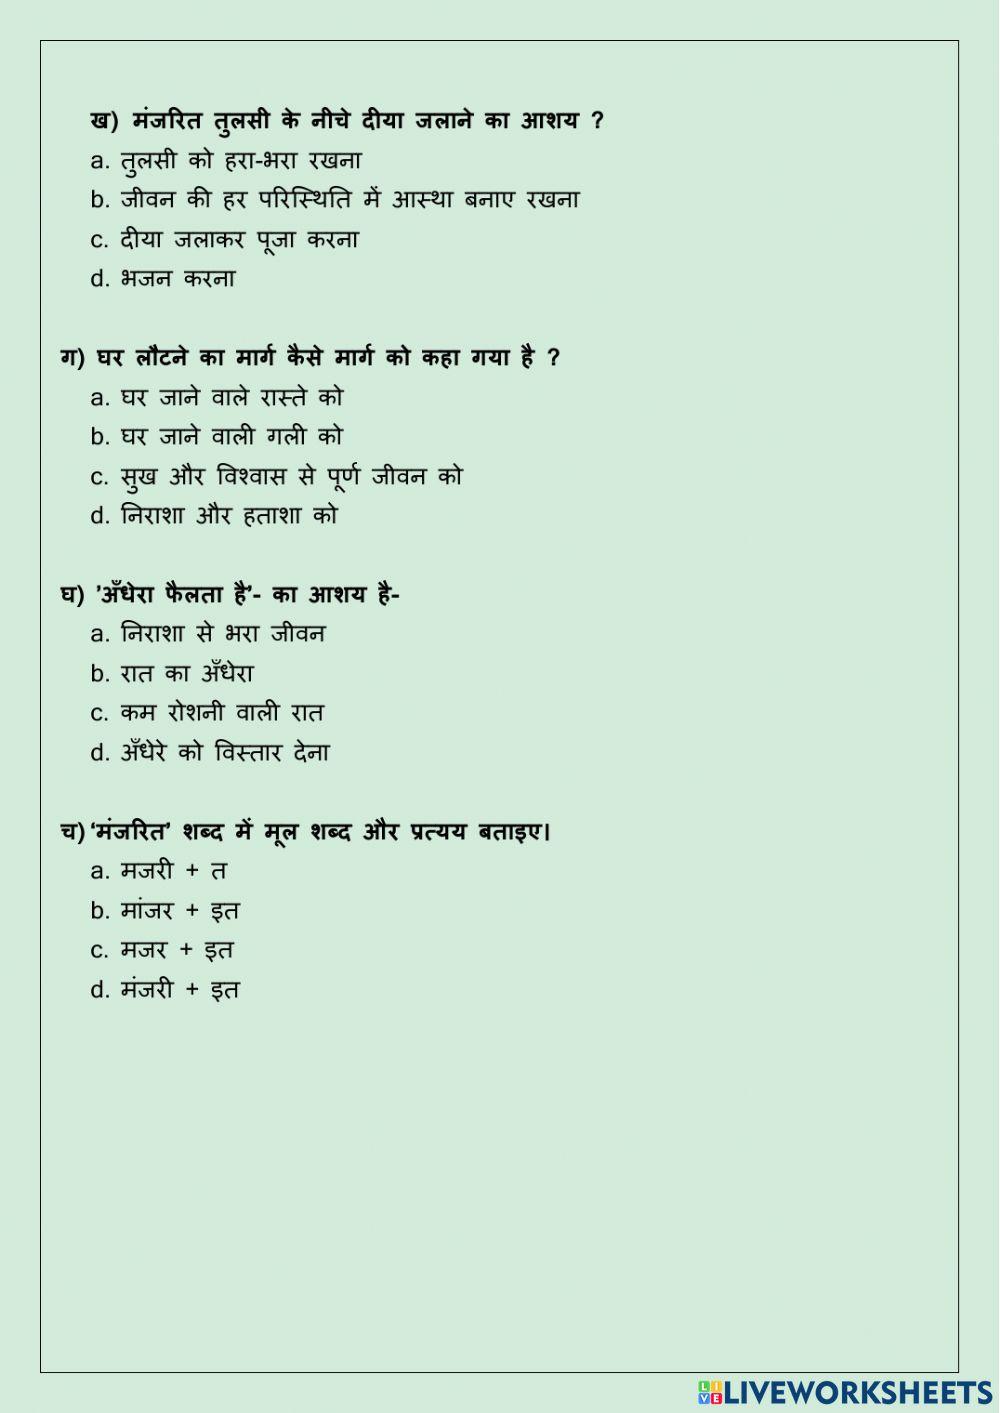 ख) मंजरित तुलसी के नीचे दीया जलाने का आशय ?
a. तुलसी को हरा-भरा रखना
b. जीवन की हर परिस्थिति में आस्था बनाए रखना
c. दीया जलाकर पूजा करना
d. भजन करना
ग) घर लौटने का मार्ग कैसे मार्ग को कहा गया है ?
a. घर जाने वाले रास्ते को
b. घर जाने वाली गली को
c. सुख और विश्वास से पूर्ण जीवन को
d. निराशा और हताशा को
घ) ’अँधेरा फैलता है’- का आशय है-
a. निराशा से भरा जीवन
b. रात का अँधेरा
c. कम रोशनी वाली रात
d. अँधेरे को विस्तार देना
च) ‘मंजरित’ शब्द में मूल शब्द और प्रत्यय बताइए।
a. मजरी + त
b. मांजर + इत
c. मजर + इत
d. मंजरी + इत
LIVEWORKSHEETS